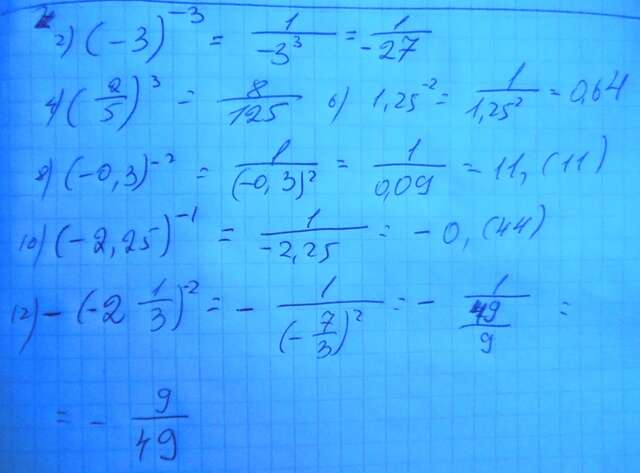 2) (-3)^-3 = 1/-3^3 = 1/-27
4) (2/5)^3 = 8/125 6) 1,25^-2 = 1/1,25^2 = 0,64
8) (-0,3)^-2 = 1/(-0,3)^2 = 1/0,09 = 11,(11)
10) (-2,25)^-1 = 1/-2,25 = -0,(44)
12) -(-2 1/3)^-2 = - 1/(-7/3)^2 = - 1/(49/9) =
= - 9/49